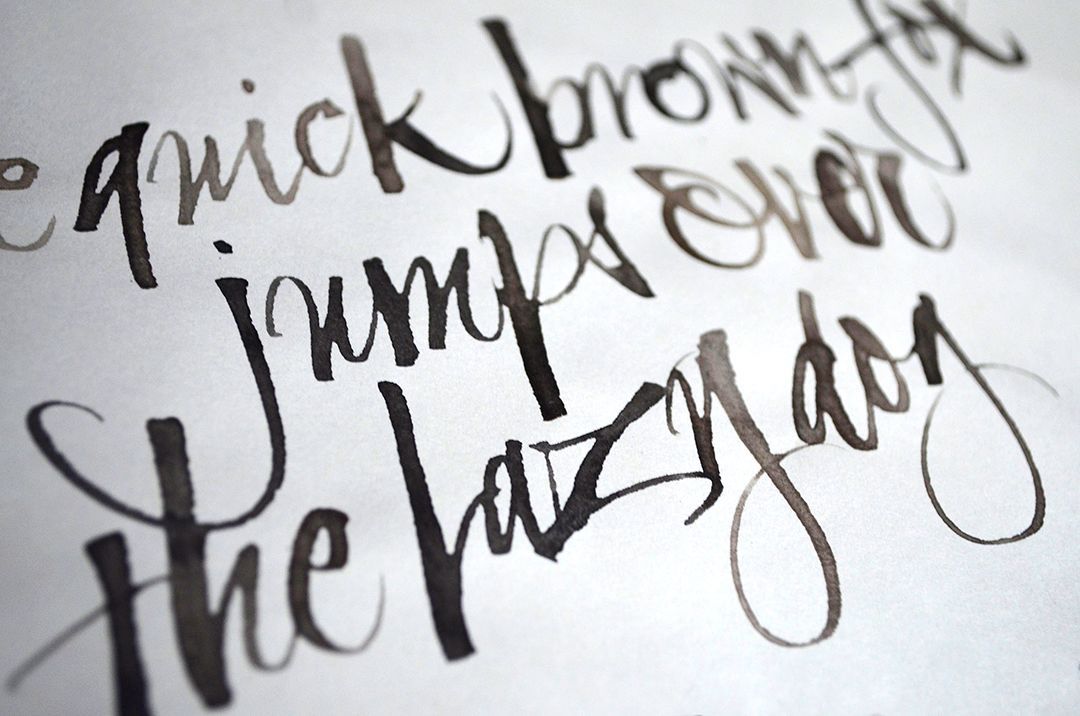 e quick brown fox
jumps over
the lazy dog